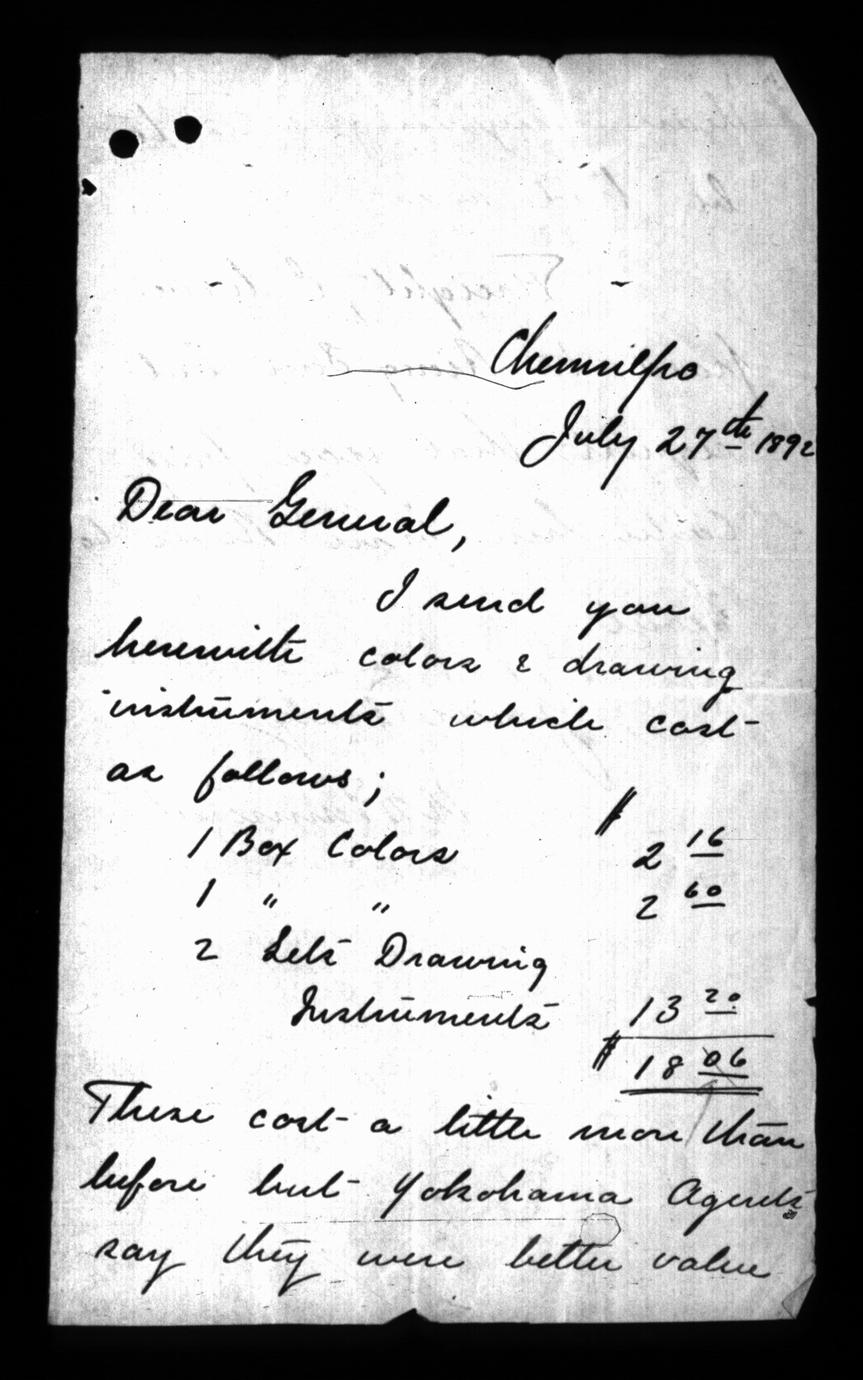 Chemulpo
July 27th 1892
Dear General,
I send you
herewith colors & drawing
instruments which cost
as follows;
$
1 Box Colors 2 16
1 " " 2 60
2 Sets Drawing
Instruments 13 20
$ 18 06
These cost a little more than
before but Yokohama Agents
say they were better value